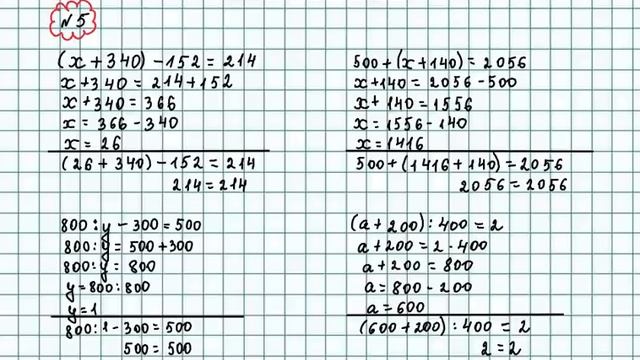 № 5
(x + 340) - 152 = 214
x + 340 = 214 + 152
x + 340 = 366
x = 366 - 340
x = 26
(26 + 340) - 152 = 214
214 = 214
500 + (x + 140) = 2056
x + 140 = 2056 - 500
x + 140 = 1556
x = 1556 - 140
x = 1416
500 + (1416 + 140) = 2056
2056 = 2056
800 : y - 300 = 500
800 : y = 500 + 300
800 : y = 800
y = 800 : 800
y = 1
800 : 1 - 300 = 500
500 = 500
(a + 200) : 400 = 2
a + 200 = 2 · 400
a + 200 = 800
a = 800 - 200
a = 600
(600 + 200) : 400 = 2
2 = 2